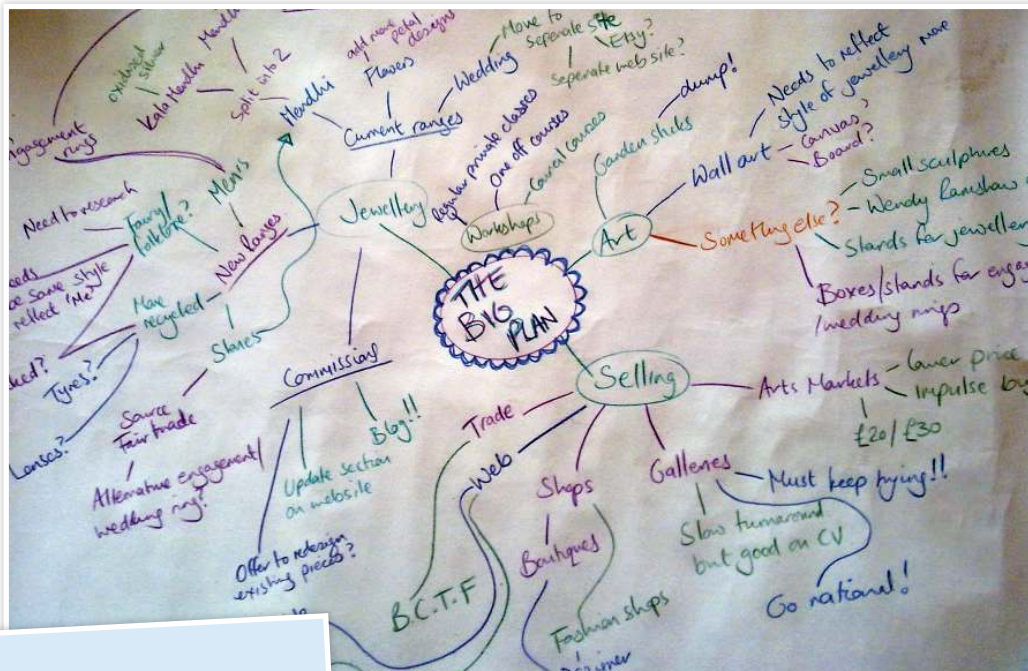 THE
BIG
PLAN
Jewellery
Current ranges
Mendhi
Split into 2
Kala Mendhi
oxidised
silver
Flowers
add more
petal
designs
Wedding
Move to
seperate site
Etsy?
Seperate web site?
New Ranges
Men's
rings
Fairy/
folklore?
Need to research
same style
reflect 'Me'
More
recycled
Tyres?
Lenses?
Stones
Source
Fair trade
Alternative engagement/
wedding ring?
Commissions
Blog!!
Update section
on website
Offer to redesign
existing pieces?
Workshops
Regular private classes
One off courses
Council courses
Art
Garden sticks
dump!
Wall art
Needs to reflect
style of jewellery more
Canvas?
Board?
Something else?
Small sculptures
Wendy Ramshaw
Stands for jewellery
Boxes/stands for
/wedding rings
Selling
Arts Markets
lower price
impulse
£20/£30
Galleries
Must keep trying!!
Slow turnaround
but good on CV
Go national!
Shops
Boutiques
Fashion shops
Web
Trade
B.C.T.F